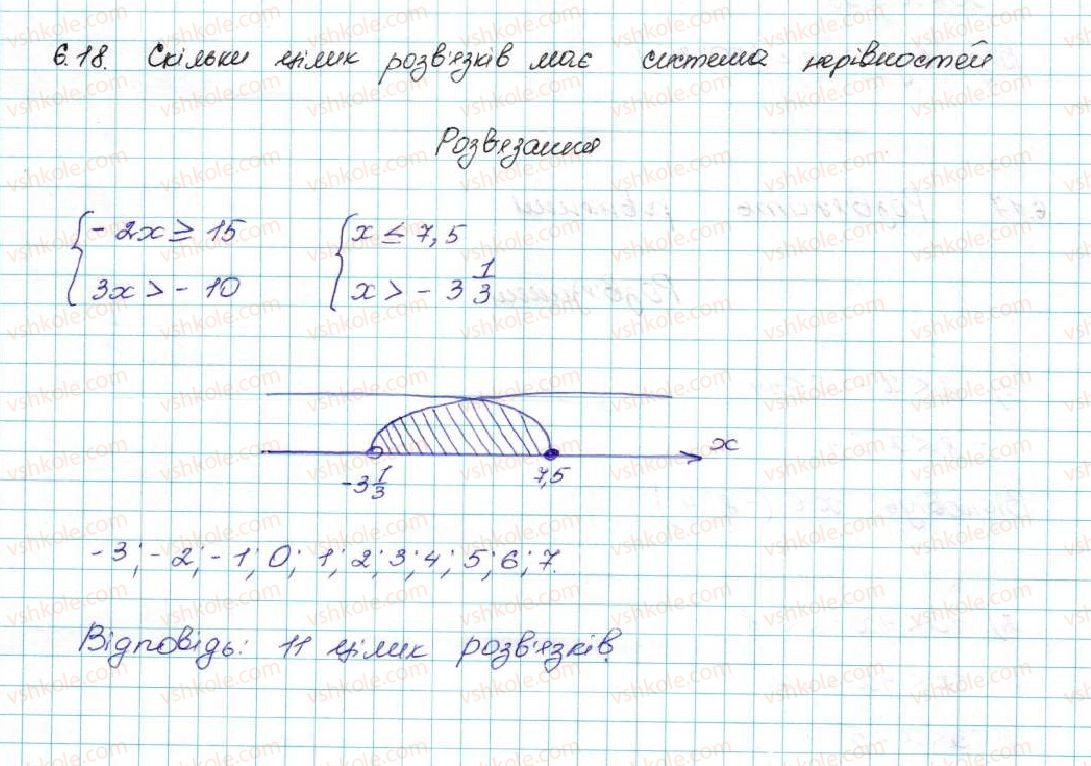 6.18. Скільки цілих розв'язків має система нерівностей
Розв'язання
{-2x ≥ 15 {x ≤ 7,5
3x > - 10 x > - 3 1/3
x
-3 1/3 7,5
-3; -2; -1; 0; 1; 2; 3; 4; 5; 6; 7.
Відповідь: 11 цілих розв'язків.
vshkole.com